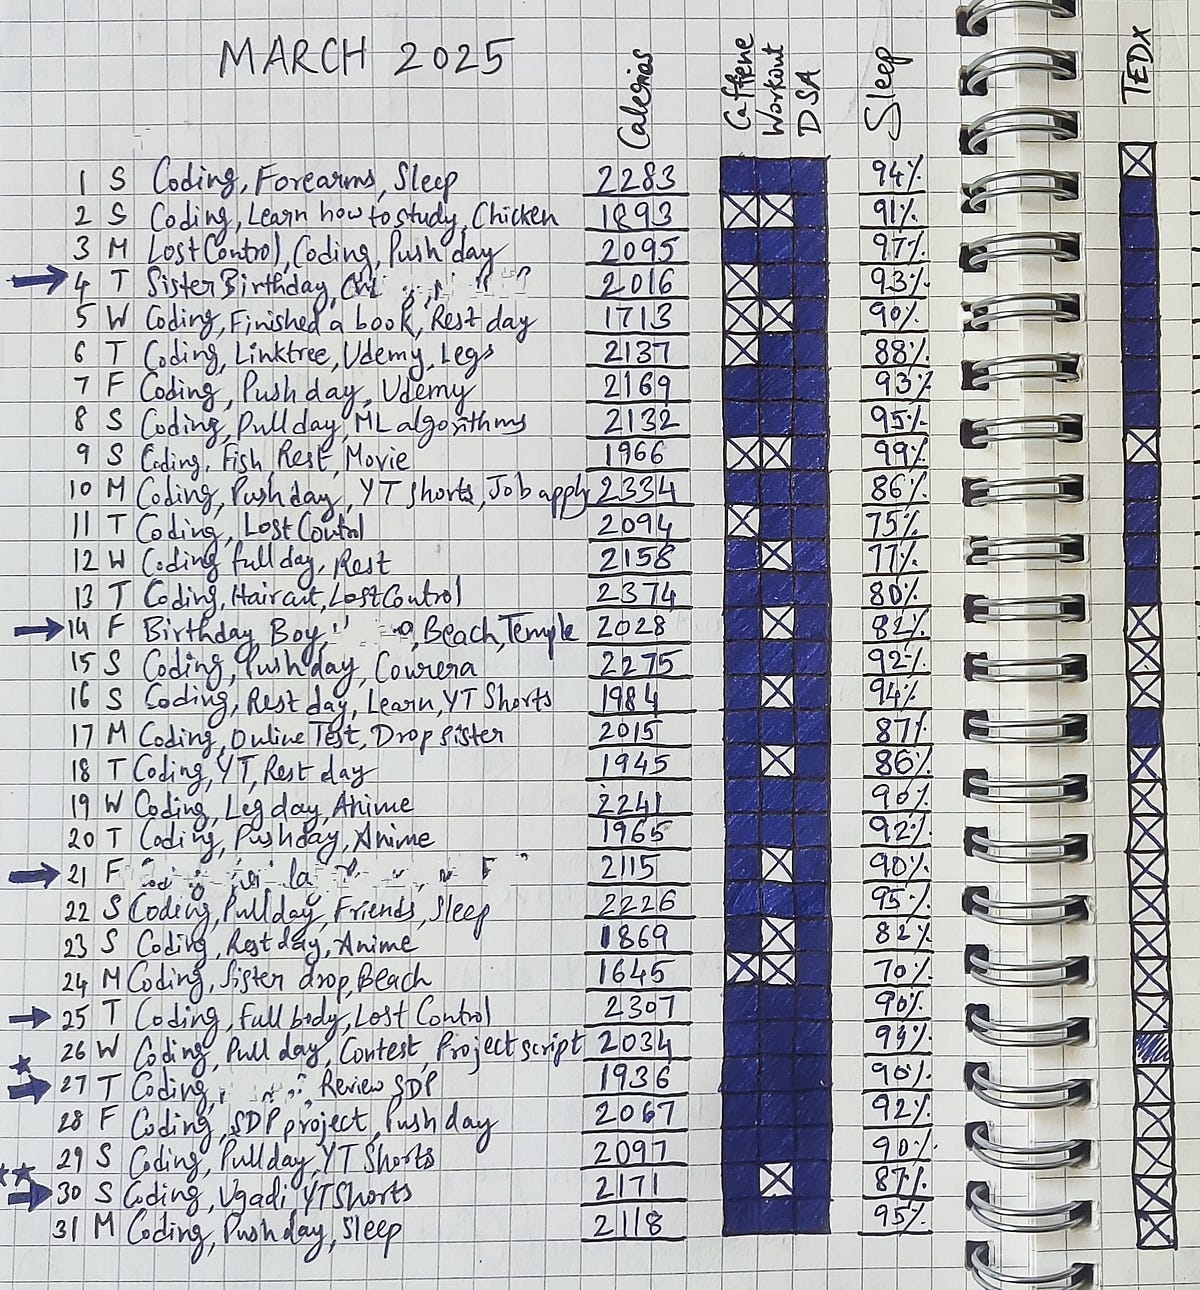 MARCH 2025
Calories Caffiene Workout DSA Sleep TEDX
1 S Coding, Forearms, Sleep 2283 94%
2 S Coding, Learn how to study, Chicken 1893 91%
3 M Lost Control, Coding, Push day 2095 97%
4 T Sister Birthday, 2016 93%
5 W Coding, Finished a book, Rest day 1713 90%
6 T Coding, Linktree, Udemy, Legs 2137 88%
7 F Coding, Push day, Udemy 2169 93%
8 S Coding, Pull day, ML algorithms 2132 95%
9 S Coding, Fish, Rest, Movie 1966 99%
10 M Coding, Push day, YT shorts, Job apply 2334 86%
11 T Coding, Lost Control 2094 75%
12 W Coding full day, Rest 2158 77%
13 T Coding, Haircut, Lost Control 2374 80%
14 F Birthday Boy, Beach, Temple 2028 82%
15 S Coding, Push day, Courera 2275 92%
16 S Coding, Rest day, Learn, YT Shorts 1984 94%
17 M Coding, Online Test, Drop sister 2015 87%
18 T Coding, YT, Rest day 1945 86%
19 W Coding, Leg day, Anime 2241 90%
20 T Coding, Push day, Anime 1965 92%
21 F 2115 90%
22 S Coding, Pull day, Friends, Sleep 2226 95%
23 S Coding, Rest day, Anime 1869 82%
24 M Coding, Sister drop, Beach 1645 70%
25 T Coding, Full body, Lost Control 2307 90%
26 W Coding, Pull day, Contest, Project script 2034 94%
27 T Coding, Review SDP 1936 90%
28 F Coding, SDP project, Push day 2067 92%
29 S Coding, Pull day, YT Shorts 2097 90%
30 S Coding, Ugadi, YT Shorts 2171 87%
31 M Coding, Push day, Sleep 2118 95%